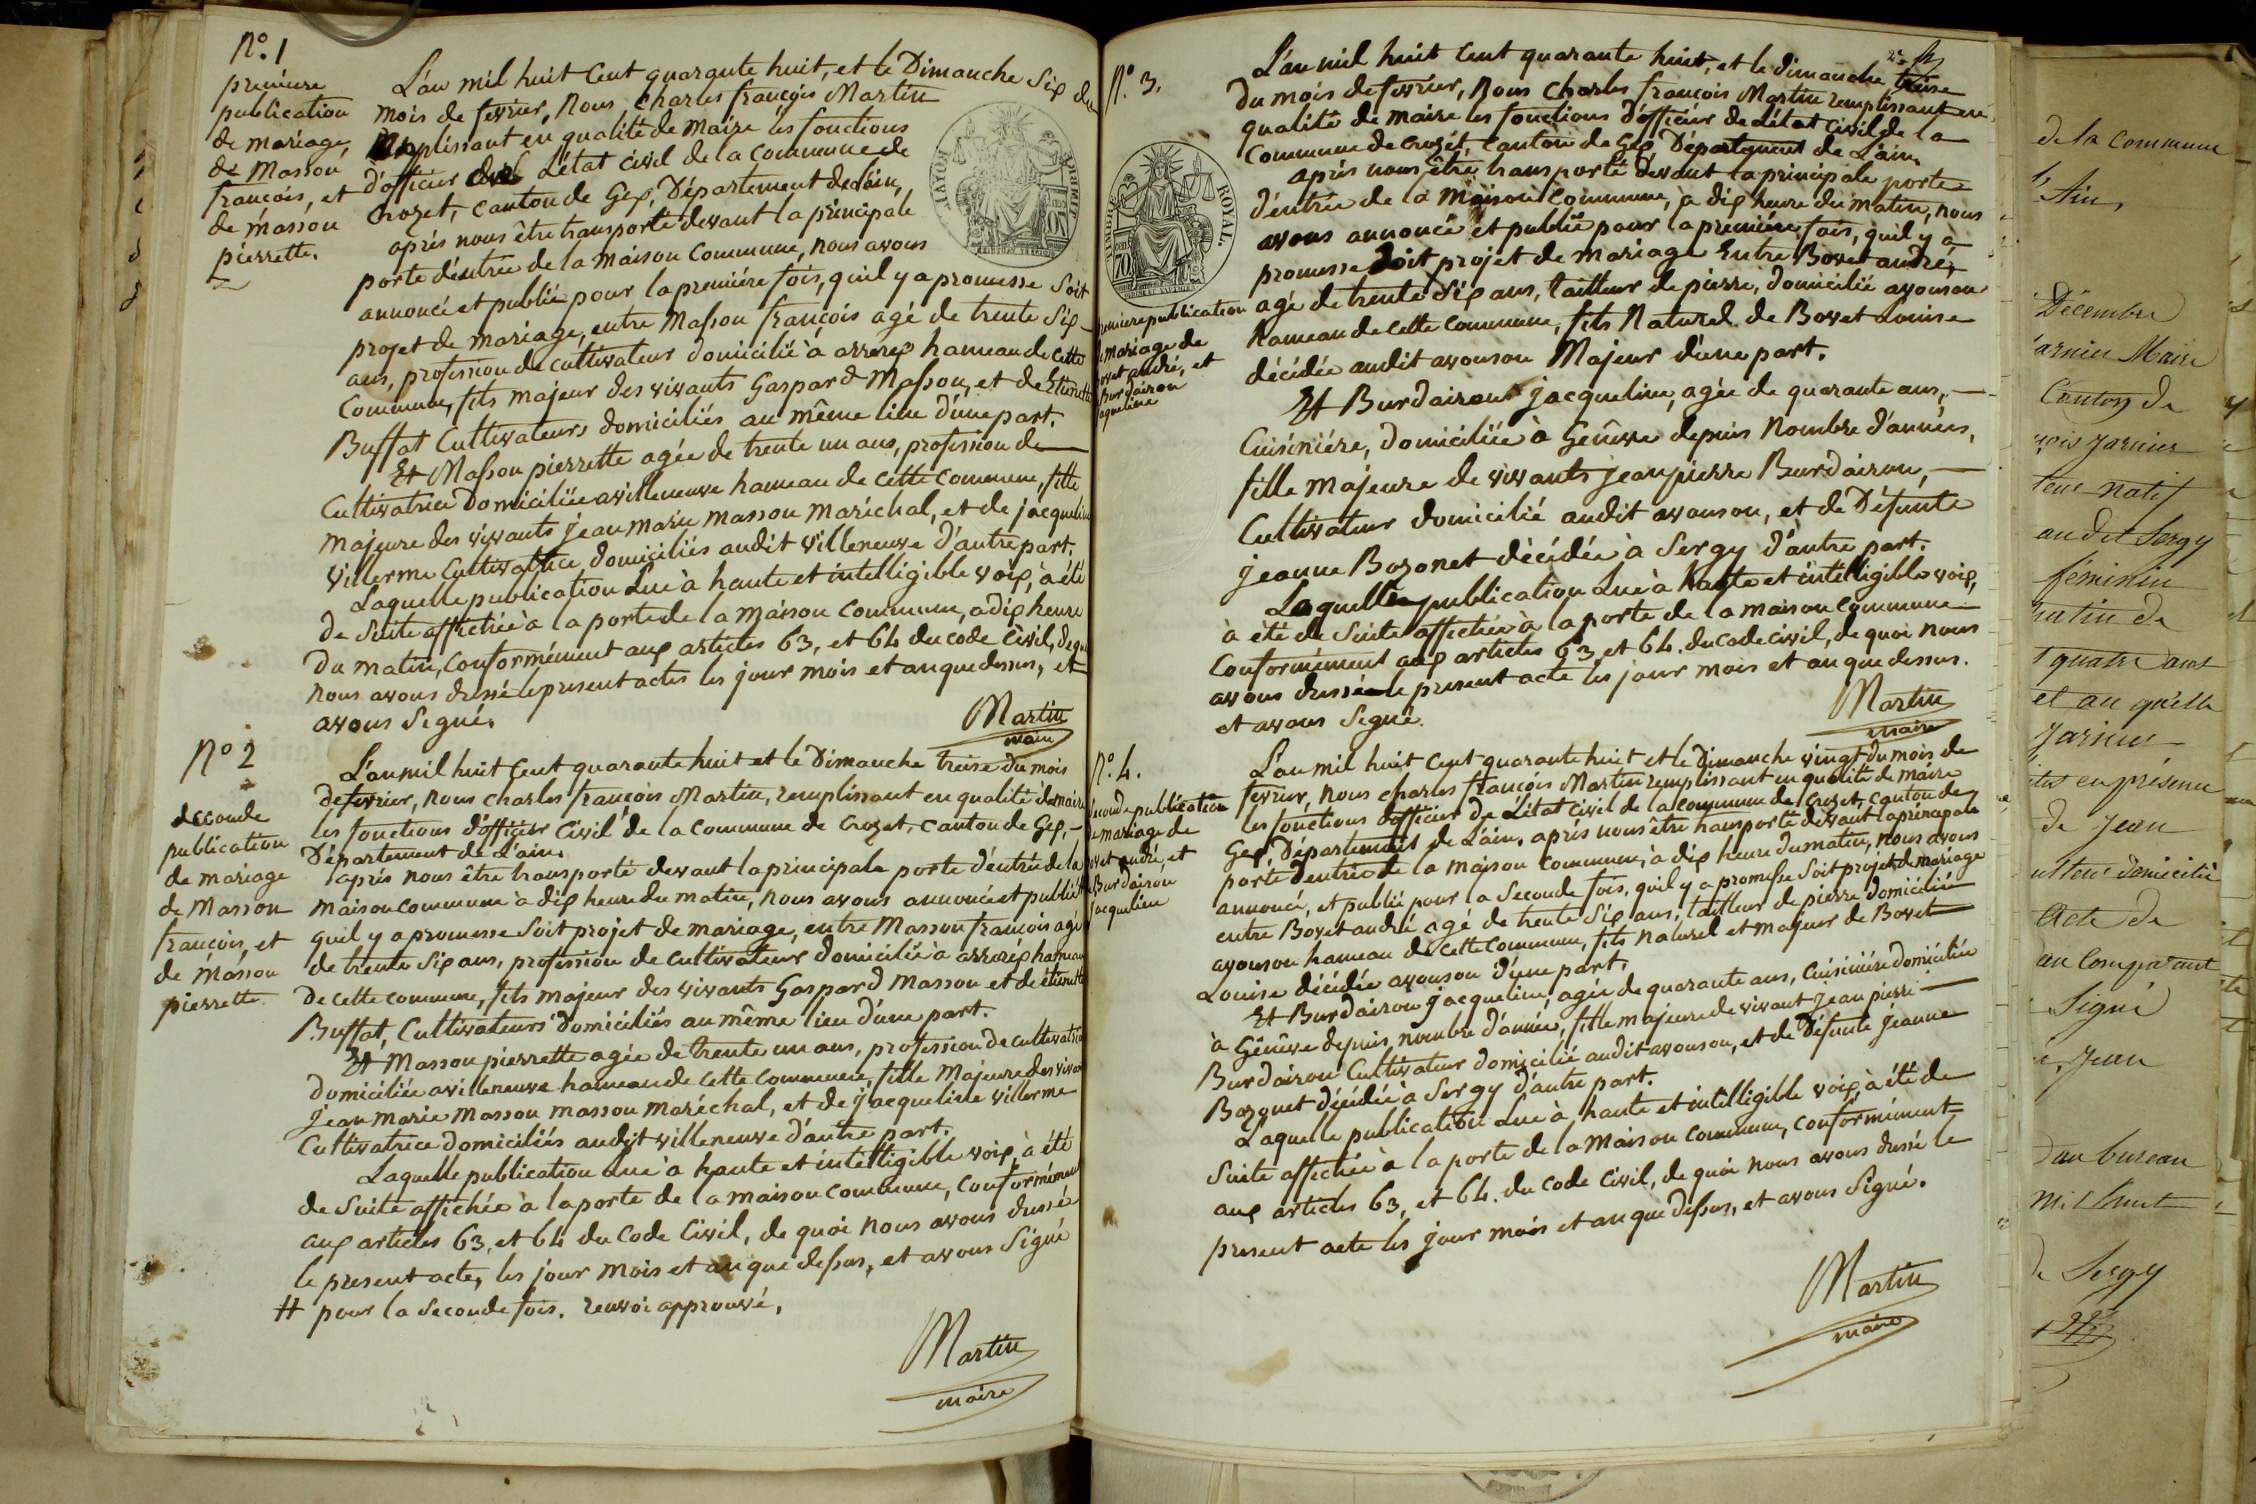 N.º 1
première
publication
de mariage,
de Masson
françois, et
de masson
pierrette.
L'an mil huit Cent quarante huit, et le Dimanche Six du
mois de fevrier, Nous Charles françois Martin
Remplissant en qualité de Maire les fonctions
d'officier L'état civil de la Commune de
Crozet, canton de Gex, Département de L'ain,
après nous être transporté devant la principale
porte d'entrée de la maison Commune, nous avons
annoncé et publié pour la première fois, qu'il y a promesse Soit
projet de mariage, entre Masson françois agé de trente Six
ans, profession de cultivateur domicilié à arrerex hameau de cette
Commune, fils majeur des vivants Gaspard Masson, et de Etiennette
Buffat Cultivateurs domiciliés au même lieu d'une part.
Et Masson pierrette agée de trente un ans, profession de
Cultivatrice Domiciliée a villeneuve hameau de cette Commune, fille
majeure des vivants jean marie masson maréchal, et de jacqueline
villerme Cultivatrice, domiciliés audit villeneuve d'autre part.
Laquelle publication Lue à haute et intelligible voix, à été
de Suite affichée à la porte de la maison Commune, a dix heure
du matin, Conformément aux articles 63, et 64 du code Civil, de quoi
nous avons dressé le present actes les jour mois et an que dessus, et
avons Signé.
Martin
maire
N.º 2
seconde
publication
de mariage
de Masson
françois, et
de Masson
pierrette.
L'an mil huit Cent quarante huit et le Dimanche treise du mois
de fevrier, nous charles françois Martin, remplissant en qualité de maire
les fonctions d'officier Civil de la Commune de Crozet, canton de Gex,
Département de L'ain.
après nous être transporté devant la principale porte d'entrée de la
maison commune à dix heure du matin, nous avons annoncé et publié #
qu'il y a promesse Soit projet de mariage, entre Masson françois agé
de trente Six ans, profession de cultivateur domicilié à arrerex hameau
de cette commune, fils majeur des vivants Gaspard Masson et de étiennette
Buffat, Cultivateurs domiciliés au même lieu d'une part.
Et Masson pierrette agée de trente un ans, profession de cultivatrice
domiciliée a villeneuve hameau de cette commune, fille Majeure des vivans
Jean marie Masson masson maréchal, et de jacqueline villerme
Cultivatrice domiciliés audit villeneuve d'autre part.
Laquelle publication Lue à haute et intelligible voix, à été
de Suite affichée à la porte de la maison commune, Conformément
aux articles 63, et 64 du Code Civil, de quoi nous avons dressé
le present acte, les jour mois et an que dessus, et avons Signé
# pour la Seconde fois. renvoi approuvé,
Martin
maire
TIMBRE ROYAL
70
N.º 3.
premiere publication
de Mariage de
Bovet andré, et
Burdairon
jaqueline
L'an mil huit Cent quarante huit, et le dimanche, treise
du mois de fevrier, nous Charles françois Martin remplissant en
qualité de maire les fonctions d'officier de L'état civil de la
Commune de Crozet, Canton de Gex, Département de L'ain.
après nous être transporté devant la principale porte
d'entrée de la Maison Commune, à dix heure du matin, nous
avons annoncé et publié pour la première fois, qu'il y à
promesse Soit projet de mariage Entre Bovet andré,
agé de trente Six ans, tailleur de pierre, domicilié avouson
hameau de cette Commune, fils Naturel de Bovet Louise
décédée audit avouson Majeur d'une part.
Et Burdairon jacqueline, agée de quarante ans,
Cuisinière, domiciliée à Genêve depuis Nombre d'années,
fille majeure de vivants jean pierre Burdairon,
Cultivateur domicilié audit avouson, et de Défunte
jeanne Bozonet décédée à Sergy d'autre part.
Laquelle publication Lue à haute et intelligible voix,
à été de Suite affichée à la porte de la maison Commune
Conformément aux articles 63, et 64. du Code civil, de quoi nous
avons dressé le present acte les jour mois et an que dessus.
et avons Signé.
Martin
maire
N.º 4.
seconde publication
de mariage de
Bovet andré, et
Burdairon
jacqueline
L'an mil huit Cent quarante huit et le Dimanche vingt du mois de
fevrier, nous charles françois Martin remplissant en qualité de maire
les fonctions d'officier de L'état Civil de la commune de Crozet, canton de
Gex, Département de L'ain. après nous être transporté devant la principale
porte d'entrée de la maison Commune, à dix heure du matin, nous avons
annoncé, et publié pour la Seconde fois, qu'il y a promesse Soit projet de mariage
entre Bovet andré agé de trente Six ans, tailleur de pierre domicilié
avouson hameau de cette commune, fils naturel et majeur de Bovet
Louise décédée avouson d'une part.
Et Burdairon jacqueline, agée de quarante ans, Cuisinière domiciliée
à Genêve depuis, nombre d'année, fille majeure de vivant jean pierre
Burdairon Cultivateur domicilié audit avouson, et de Défunte jeanne
Bozonet décédée à Sergy d'autre part.
Laquelle publication Lue à haute et intelligible voix, à été de
Suite affichée à la porte de la maison Commune, Conformément
aux articles 63, et 64. du Code Civil, de quoi nous avons dressé le
present acte les jour mois et an que dessus, et avons Signé.
Martin
maire
de la commune
Ain,
Décembre
Maire
Canton de
natif
audit Sergy
féminin
matin de
quatre ans
et an qu'elle
en présence
de Jean
domicilié
Acte de
Comparant
Signé
Jean
au bureau
mil huit
de Sergy